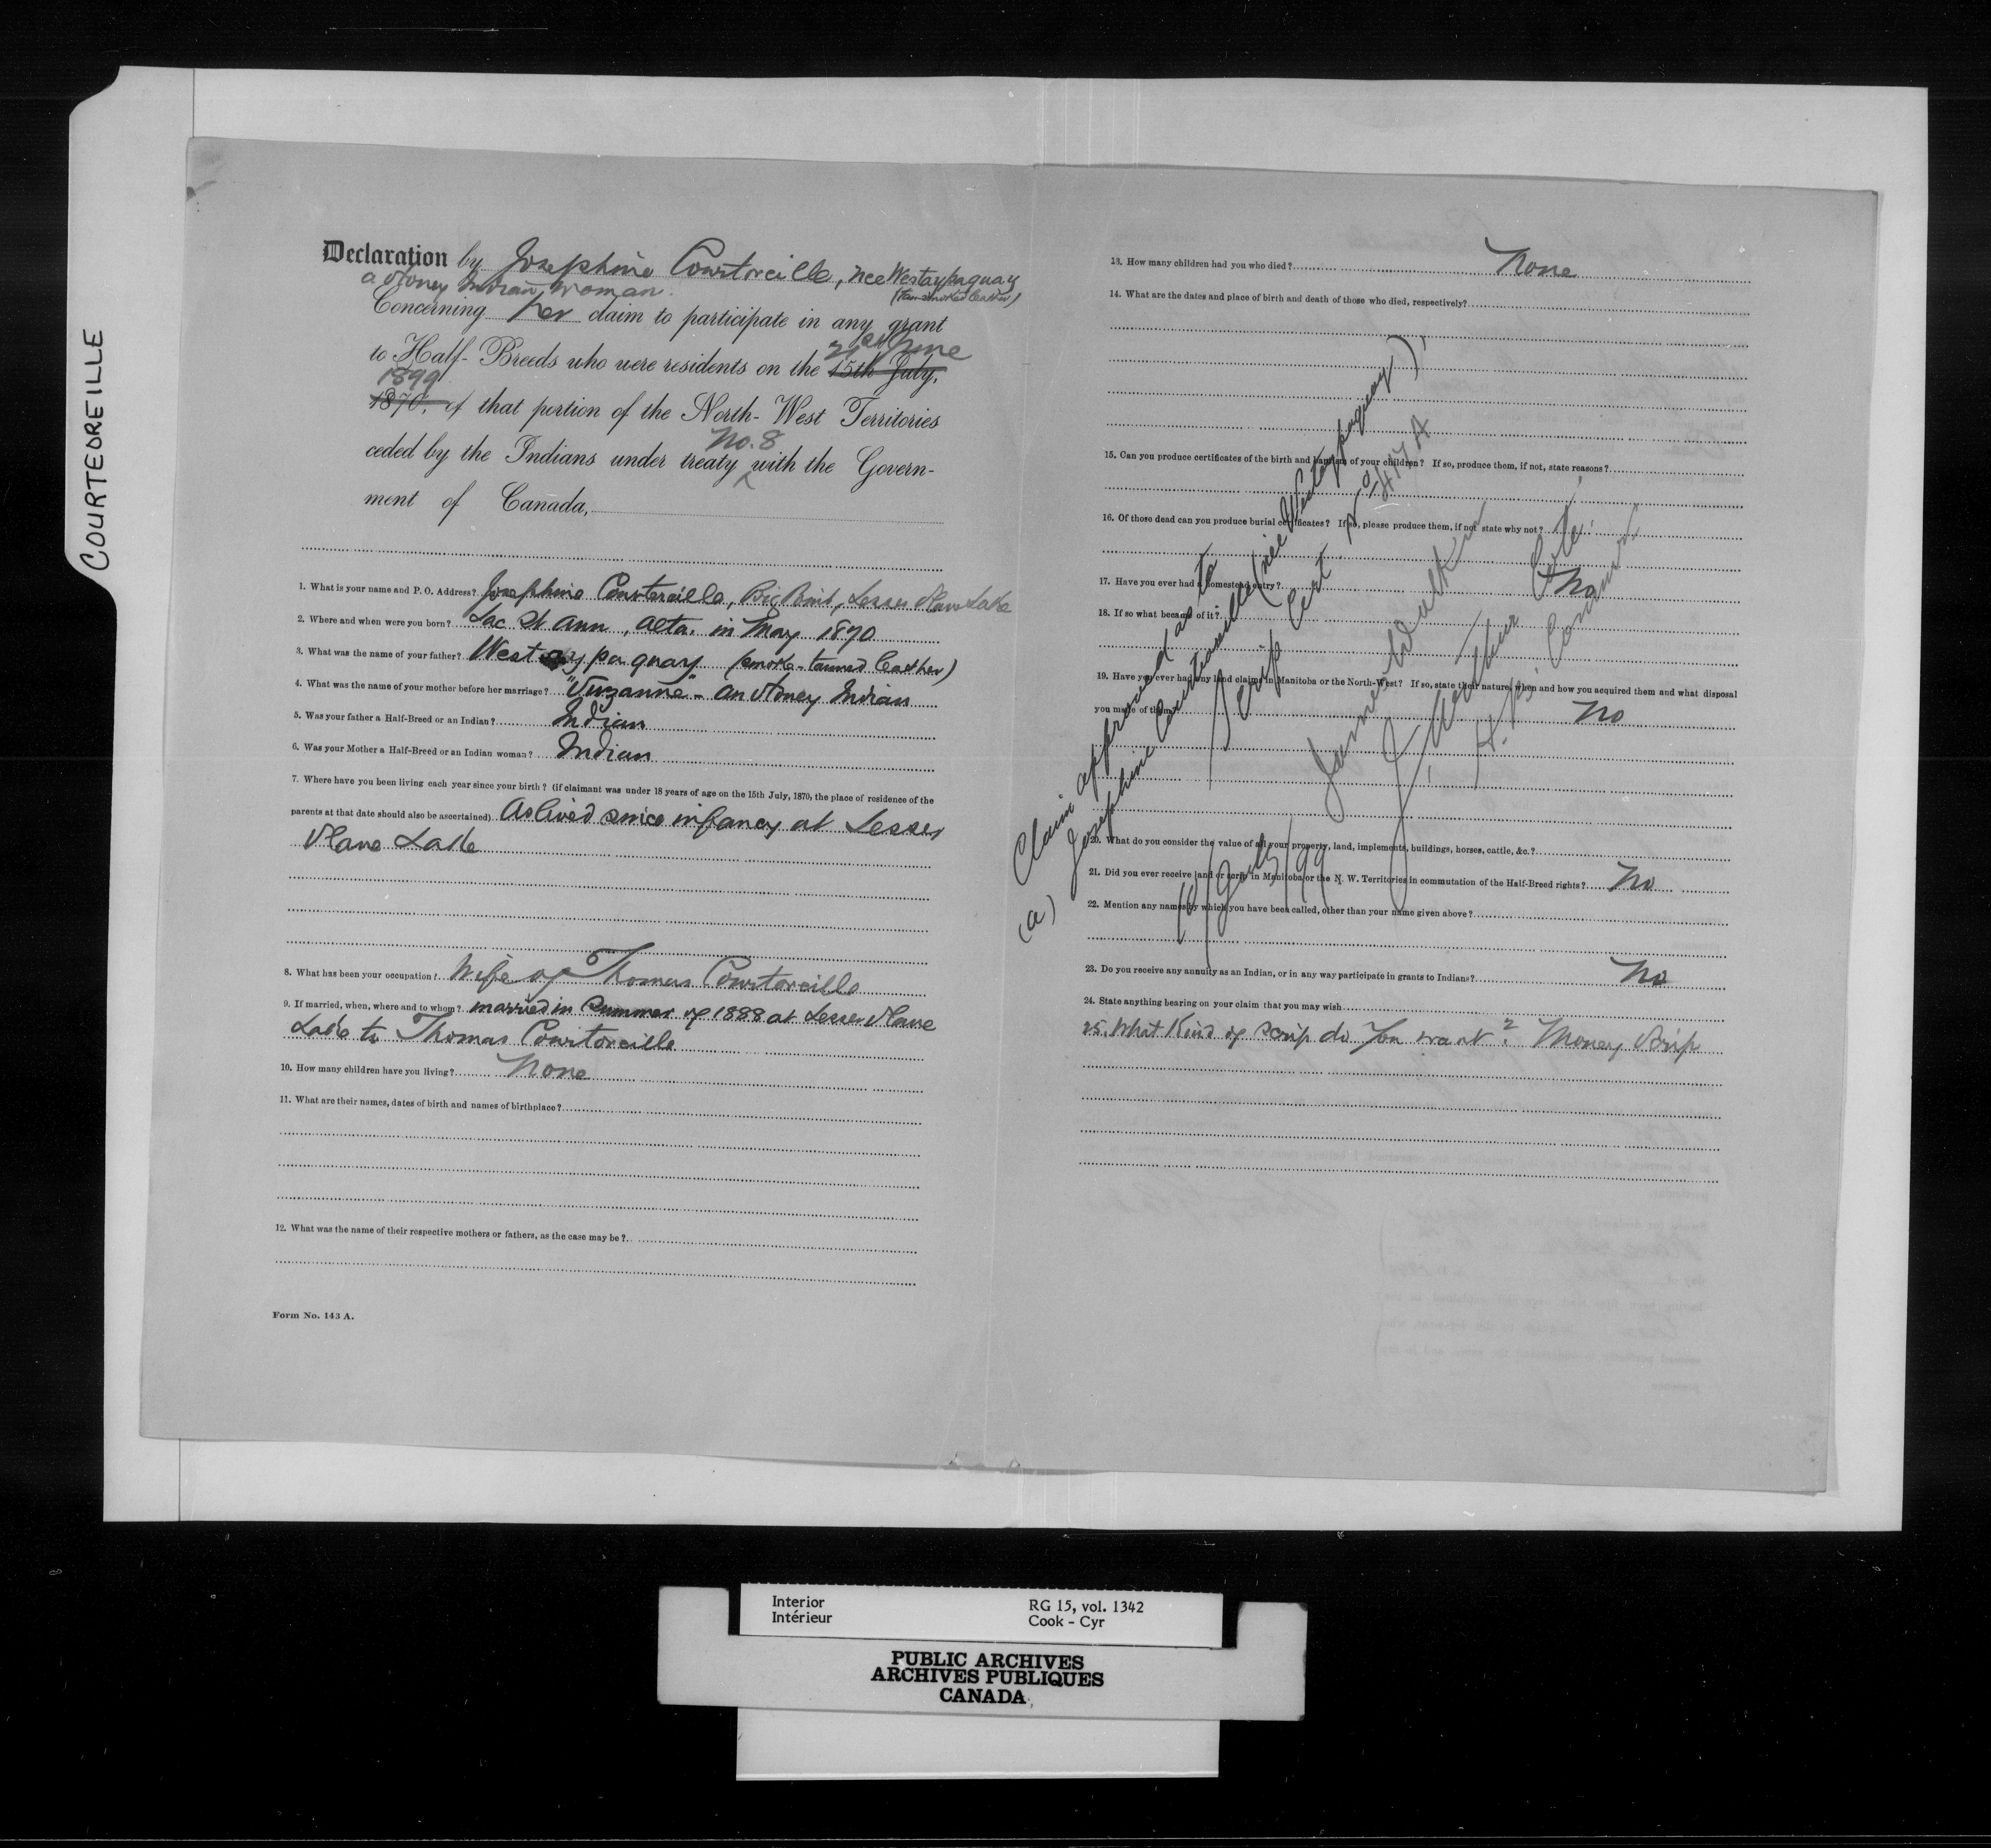 COURTEOREILLE
Declaration by Josephine Courtoreille, nee Westaypaquay
a Stoney Indian Woman.
Concerning her claim to participate in any grant
to Half-Breeds who were residents on the 15th July, 21st June
1870, 1899 of that portion of the North-West Territories
ceded by the Indians under treaty No. 8 with the Govern-
ment of Canada,
1. What is your name and P. O. Address? Josephine Courtoreille, Big Point, Lesser Slave Lake
2. Where and when were you born? Lac St Ann, Alta. in May 1870
3. What was the name of your father? Westaypaquay (smoke-tanned leather)
4. What was the name of your mother before her marriage? "Suzanne" - an Stoney Indian
5. Was your father a Half-Breed or an Indian? Indian
6. Was your Mother a Half-Breed or an Indian woman? Indian
7. Where have you been living each year since your birth? (if claimant was under 18 years of age on the 15th July, 1870, the place of residence of the
parents at that date should also be ascertained) As lived since infancy at Lesser
Slave Lake
8. What has been your occupation? Wife of Thomas Courtoreille
9. If married, when, where and to whom? married in Summer of 1888 at Lesser Slave
Lake to Thomas Courtoreille
10. How many children have you living? None
11. What are their names, dates of birth and names of birthplace?
12. What was the name of their respective mothers or fathers, as the case may be?
Form No. 143 A.
13. How many children had you who died? None
14. What are the dates and place of birth and death of those who died, respectively?
15. Can you produce certificates of the birth and baptism of your children? If so, produce them, if not, state reasons?
16. Of those dead can you produce burial certificates? If so, please produce them, if not state why not?
17. Have you ever had a homestead entry? No
18. If so what became of it?
19. Have you ever had any land claims in Manitoba or the North-West? If so, state their nature, when and how you acquired them and what disposal
you made of them. No
20. What do you consider the value of all your property, land, implements, buildings, horses, cattle, &c.?
21. Did you ever receive land or scrip in Manitoba or the N. W. Territories in commutation of the Half-Breed rights? No
22. Mention any names by which you have been called, other than your name given above?
23. Do you receive any annuity as an Indian, or in any way participate in grants to Indians? No
24. State anything bearing on your claim that you may wish
25. What Kind of scrip do You want? Money Scrip
Claim approved as to
(a) Josephine Courtoreille (née Westaypaquay)
Scrip Cert. No 417 A
James Walker
J. Arthur Coté
H. B. Commrs
Interior
Intérieur
RG 15, vol. 1342
Cook - Cyr
PUBLIC ARCHIVES
ARCHIVES PUBLIQUES
CANADA